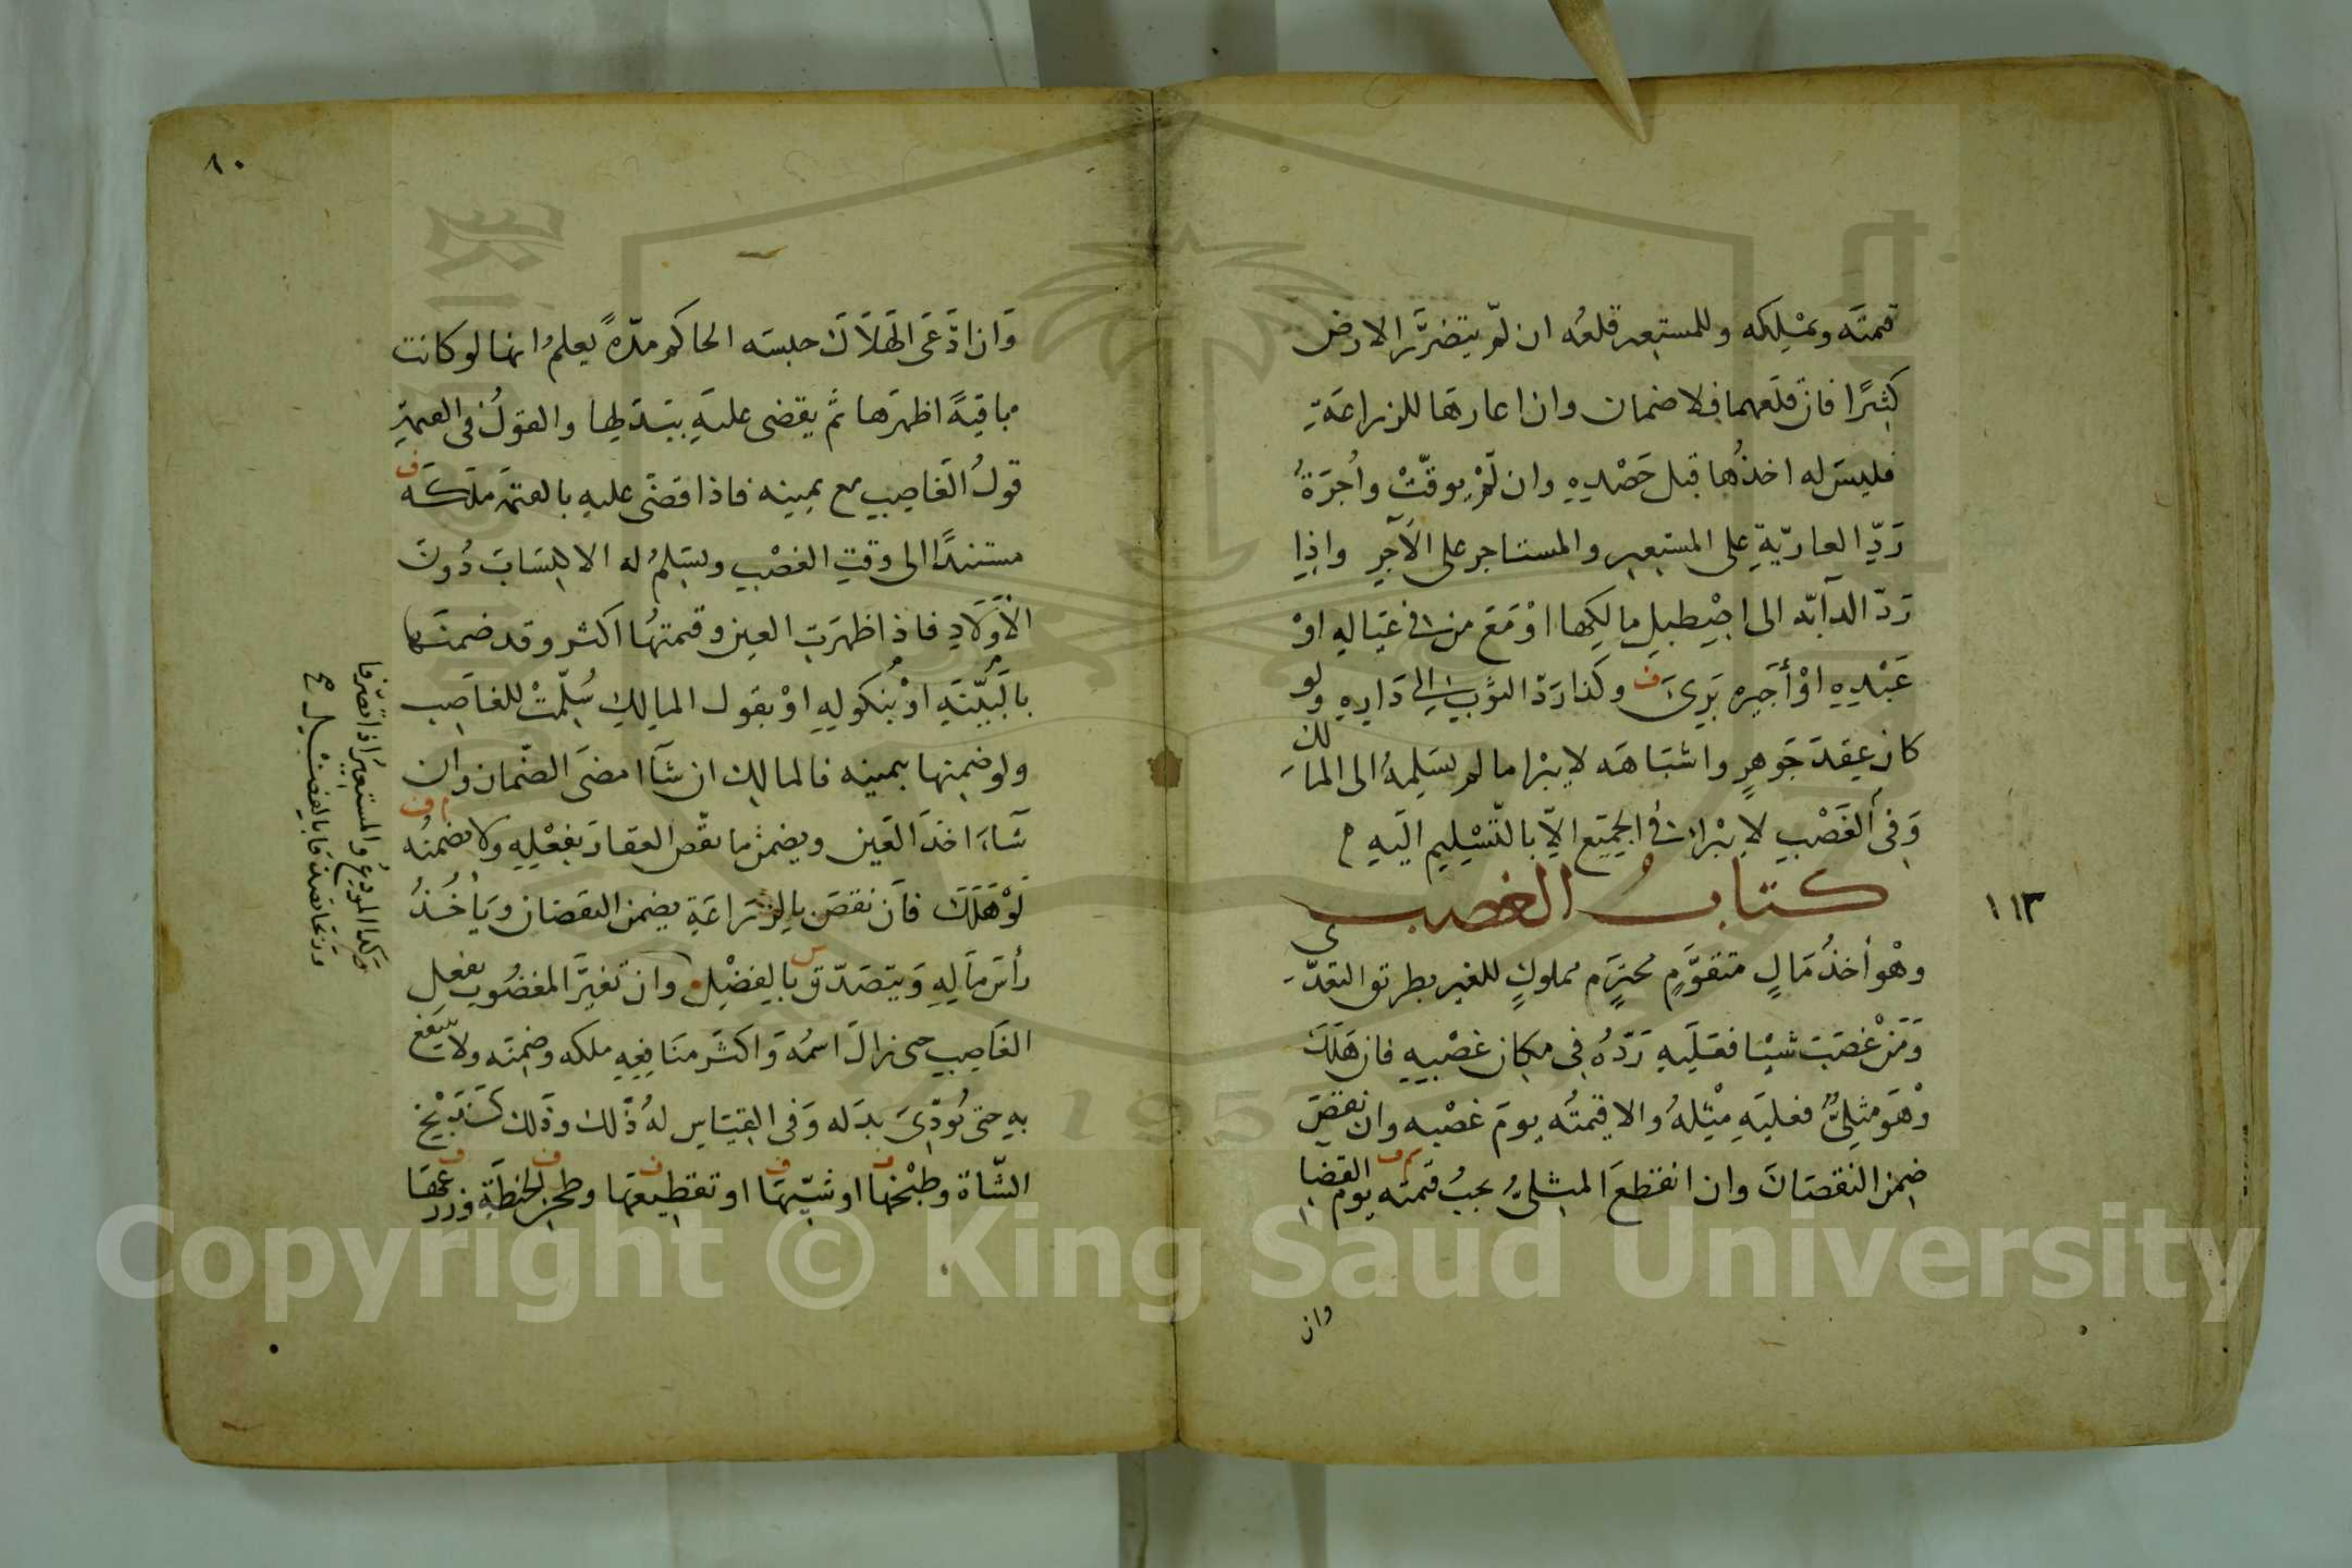 قيمته ويملكه وللمستعير قلعه ان لم يتضرر الارض
كثيرًا فان قلعهما فلا ضمان وان اعارها للزراعة
فليس له اخذُها قبل حَصْدِهِ وان لَمْ يوقّتْ واُجرَةُ
رَدِّ العاريّةِ على المستعير والمستاجر على الآجِرِ واذا
رَدّ الدآبّه الى اصْطبلِ مالكها اوْ مَعَ من فى عيَاله اوْ
عَبْدِهِ اوْ أجيره بَرِئَ وكذا رَدّ الثوبِ الى دَارِهِ ولو
كان عِقدَ جَوهرٍ واشبَاهَه لا يبرا ما لم يسَلمهُ الى المالك
وَفى الغَصْبِ لا يبْرا فى الجميَعِ الاّ بالتّسْليمِ اليَهِ م
كتابُ الغصب
وهْو أخذُ مَالٍ متقوَّمٍ محترَم مملوكٍ للغير بطريق التعدّى
وَمَنْ غصَبَ شيْئا فعَليَهِ رَدّهُ فِى مكان غصْبِهِ فان هَلكَ
وْهوَ مثِليٌّ فعليَهِ مِثْلهُ والا قيمتُه يومَ غصْبه وان نقصَ
ضمن النقصَانَ وان انقطعَ المثلىُّ يجبُ قيمته يوم القضا
وان
١١٣
٨٠
وَان ادَّعَى الهَلاَكَ حبسَه الحاكم مدّهً يعلمُ انها لو كانت
باقيةً اظهرَها ثم يقضى عليَهِ ببَدَلها والقولُ فى القيمةِ
قولُ الغَاصِبِ مع يمينه فاذا قضَى عليه بالقيمة ملكَه
مستندًا الى وقتِ الغصْبِ وتسَلمُ له الاكسَابَ دُونَ
الأوْلادِ فاذا ظهرَتِ العين وقيمتهُا اكثر وقد ضمنها
بالبَيّنَةِ اوْ بُنكولِهِ اوْ بقول المالِكِ سُلّمَتْ للغاصِبِ
ولو ضمِنها بيمينه فالمالِك ان شآ امضىَ الضّمان وان
شآءَ اخذَ العَين ويضمن ما نقّص العقارَ بفعْلِهِ ولا يضمنُه
لوْ هَلكَ فان نقصَ بالزّرَاعَةِ يضمن النقصَان وَيأخُذُ
رأسَ مَالِهِ وَيتصَدّق بالفضْلِ وان تغيَّرَ المغصُوب بفعل
الغَاصِبِ حتى زالَ اسمُه وَاكثر منَافِعِهِ ملكه وضمِنَه ولا ينتفعْ
بهِ حتى يُؤدّىَ بدَله وَفى القِيَاسِ لهُ ذَلكَ وذَلك كذَبْحِ
الشّاة وطبْخها او شَيّهَا او تقطيعها وطحن الحنطَةِ وزرعهَا
وَكذا المودَعُ والمستعيْرُ اذا تصَرّفا
وَربحَا تصَدّقا بالفضْل مح